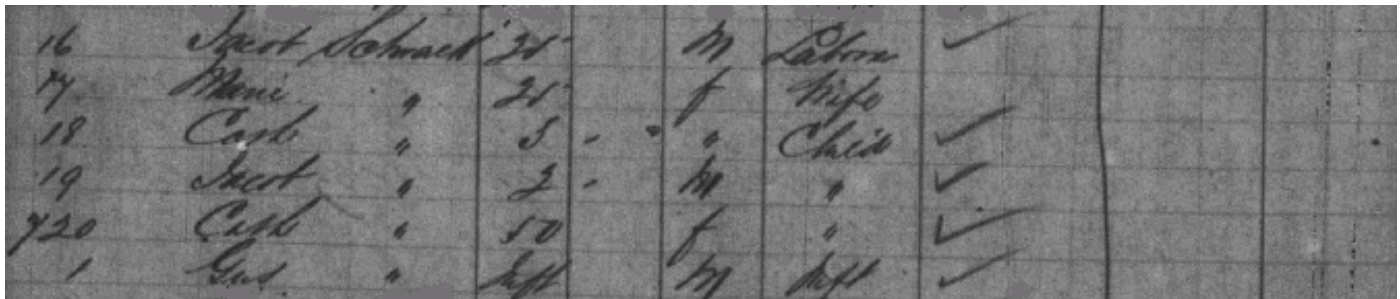 16 Jacob Schmaelt 25 M Labour ✓
17 Marie " 25 f Wife
18 Cath " 5 - " Child ✓
19 Jacob " 2 - M " ✓
720 Cath " 50 f " ✓
1 Gus " Inft M Inft ✓